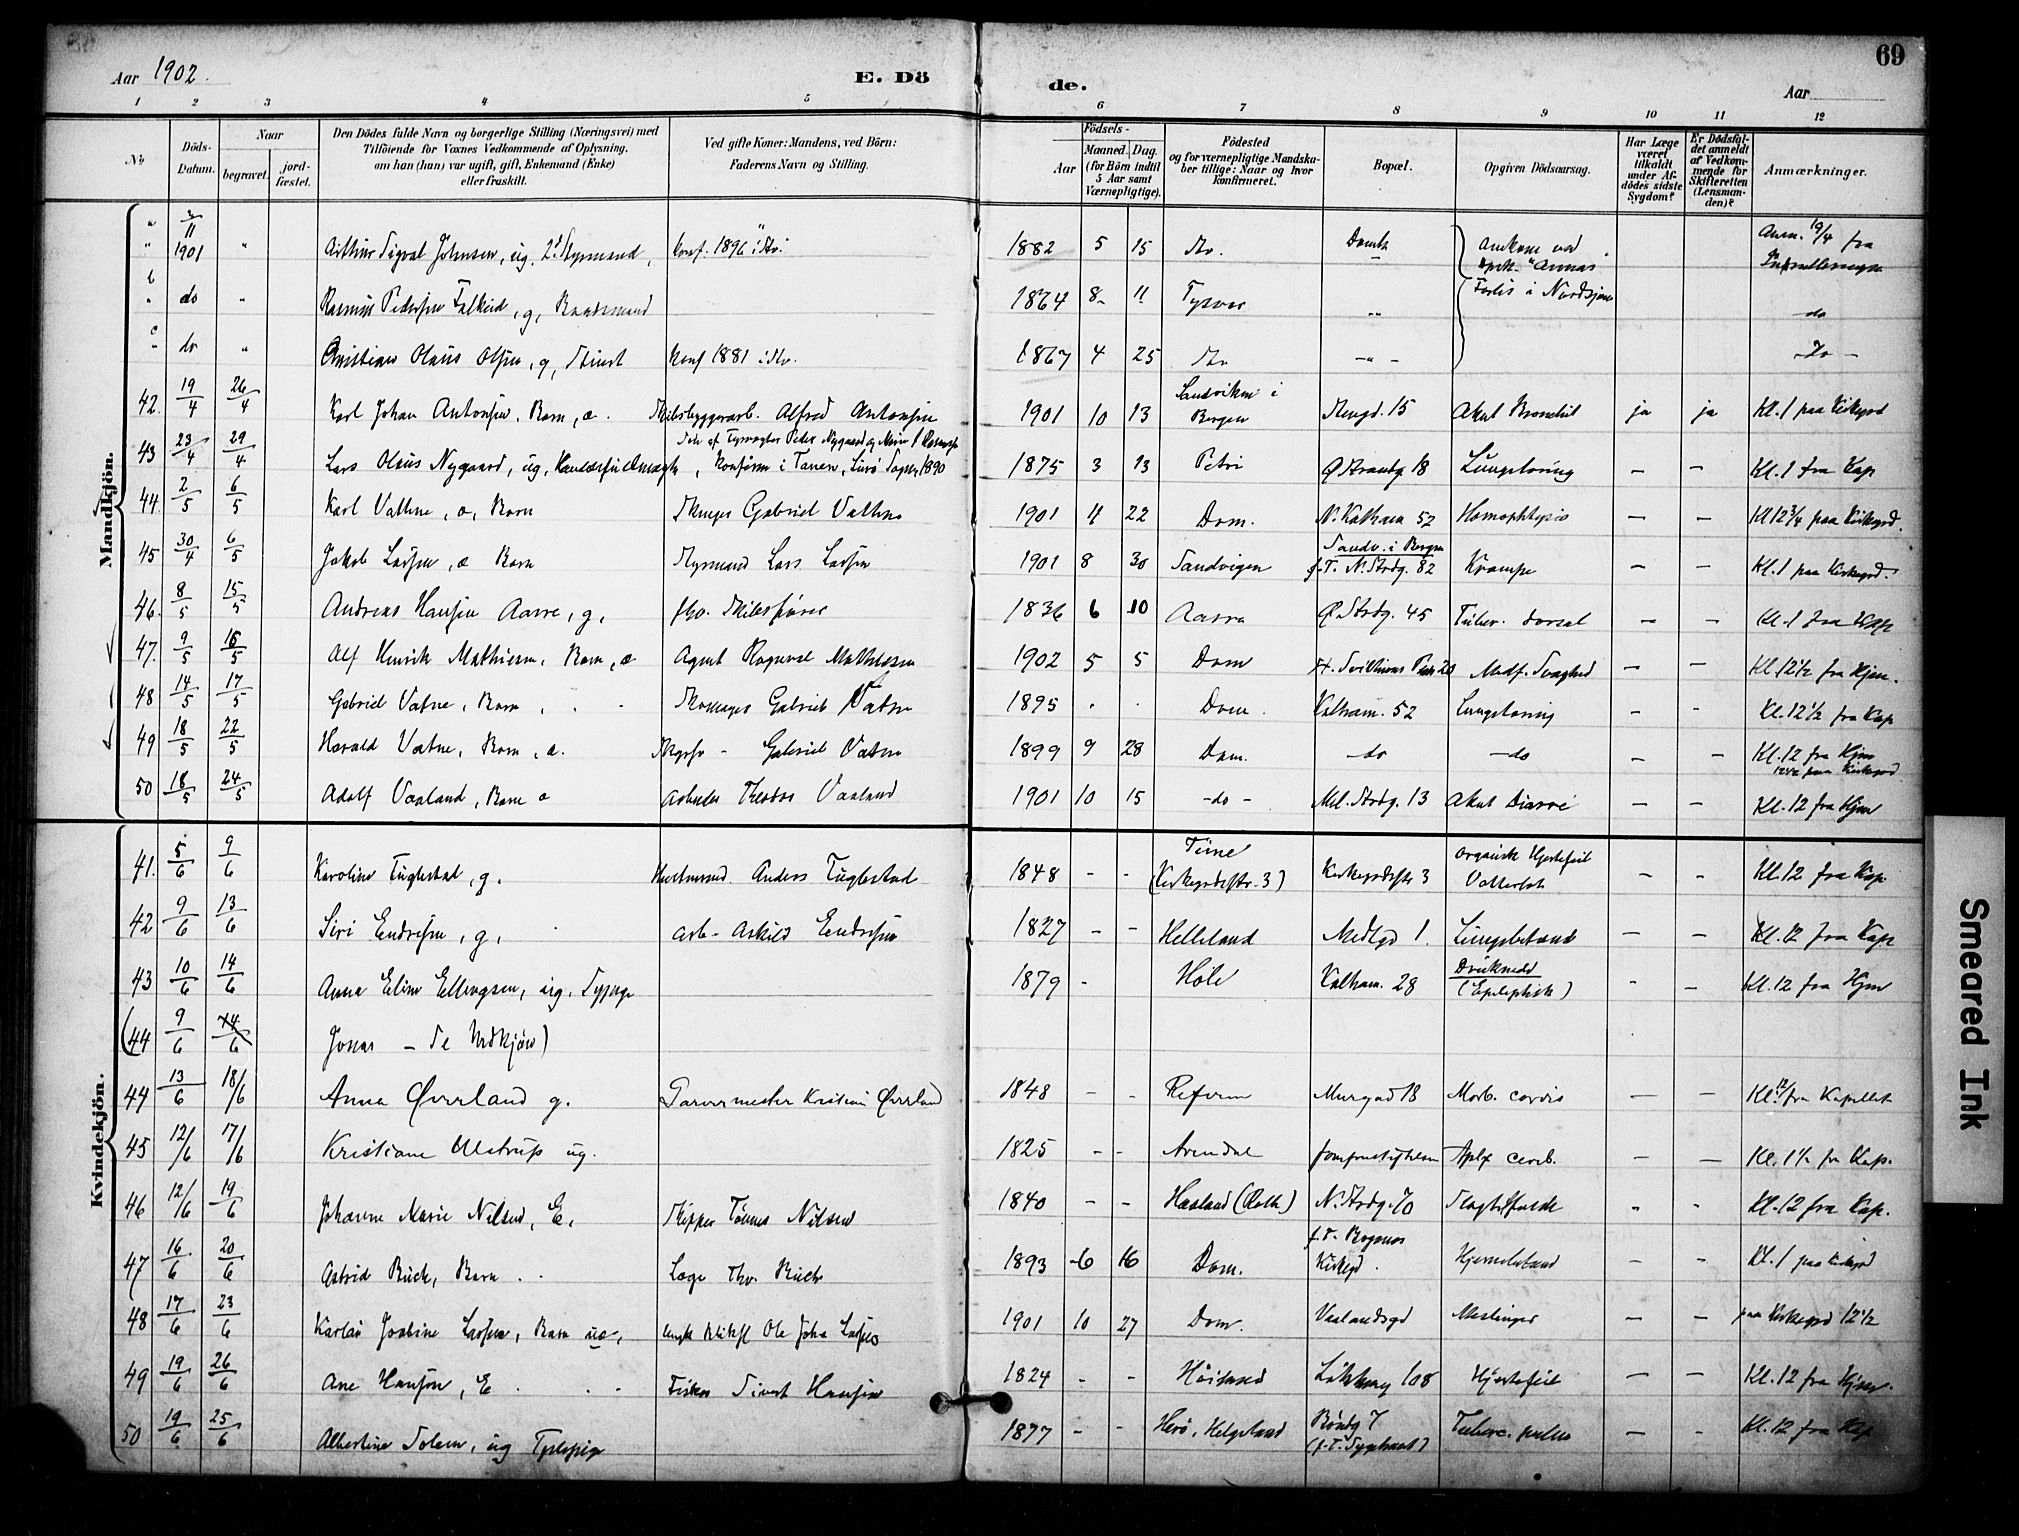 Aar 1902.
E. Døde.
Aar
69
1 2 3 4 5 6 7 8 9 10 11 12
No
Døds-Datum.
Naar
begravet.
jord-fæstet.
Den Dødes fulde Navn og borgerlige Stilling (Næringsvei) med
Tilføiende for Voxnes Vedkommende af Oplysning,
om han (hun) var ugift, gift, Enkemand (Enke)
eller fraskilt.
Ved gifte Koner: Mandens, ved Børn:
Faderens Navn og Stilling.
Fødsels-
Aar
Maaned. Dag.
(for Børn indtil
5 Aar samt
Værnepligtige).
Fødested
og for værnepligtige Mandska-
ber tillige: Naar og hvor
konfirmeret.
Bopæl.
Opgiven Dødsaarsag.
Har Læge
været
tilkaldt
under Af-
dødes sidste
Sygdom?
Er Dødsfal-
det anmeldt
af Vedkom-
mende for
Skifteretten
(Lensman-
den)?
Anmærkninger.
Mandkjøn.
1901 " Arthur Sigval Johnsen, ug. 2d Styrmand, konf. 1896 i Stv. 1882 5 15 Stv. Domk. Omkom ved Anm. 19/4 fra
"Annas"
b " do " Rasmus Pedersen Falkeid, g, Baadsmand 1864 8 11 Tysvær " Forlis i Nordsjøen do
c " do " Christian Olaus Olsen, g, Stuert konf 1881 i Stv. 1867 4 25 Stv - " - - Do -
42. 19/4 26/4 Karl Johan Antonsen, Barn, æ. Skibsbyggerarb. Alfred Antonsen 1901 10 13 Sandviken i Bergen Stengd. 15 Akut Bronchit ja ja Kl. 1 paa Kirkegrd
43 23/4 29/4 Lars Olaus Nygaard, ug, konfirm i Tanen, 1890 1875 3 13 Petri Ø. Strandg. 18 Lungetæring - - Kl. 1 fra Kap
44 2/5 6/5 Karl Vattne, æ, Barn Gabriel Vattne 1901 11 22 Dom. N. Kalham 52 Hæmophtysis - - Kl 12 3/4 paa Kirkegrd.
45 30/4 6/5 Jakob Larsen, æ Barn Styrmand Lars Larsen 1901 8 30 Sandvigen Sandv. i Bergen
f. T. N. Strdg. 82 Krampe - - Kl. 1 paa Kirkegrd.
46. 8/5 15/5 Andreas Hansen Aarre, g, fhv. Skibsfører 1836 6 10 Aarre Ø. Strdg. 45 Tuber. dorsal - - Kl. 1 fra Kap
47. 9/5 16/5 Alf Henrik Mathiesen, Barn, æ Agent Ragnval Mathiesen 1902 5 5 Dom St. Svithuns 20 Medf. Svaghed - - Kl. 12 1/2 fra Hjem.
48 14/5 17/5 Gabriel Vatne, Barn Skomager Gabriel Vatne 1895 Dom. Kalham. 52 Lungetæring - - Kl. 12 1/2 fra Kap
49 18/5 22/5 Harald Vatne, Barn, æ. Gabriel Vatne 1899 9 28 Dom. - do - do - - Kl. 12 fra Hjem
12 1/2 paa Kirkegrd
50 18/5 24/5 Adolf Vaaland, Barn æ Arbeider Theodor Vaaland 1901 10 15 - do - Mel. Strdg. 13 Akut Diarré - - Kl. 12 fra Hjem
Kvindekjøn.
41. 5/6 9/6 Karoline Fuglestad, g. Anders Fuglestad 1848 - - Time
(Kirkegrdsstr. 3) Kirkegrdsstr 3 organisk Hjertefeil
Vattersot - - Kl. 12 fra Kap
42 9/6 13/6 Siri Endresen, g, arb. Askild Endresen 1827 - - Helleland Medlgd 1. Lungebetænd - - Kl. 12 fra Kap
43 10/6 14/6 Anna Eline Ellingsen, ug. 1879 - Høle Kalham. 28 Druknede
(Epileptisk) - - Kl. 12 fra Hjem
(44 9/6 14/6 Jonas - Se Mdkjøn)
44 13/6 18/6 Anna Øverland g. Garvermester Kristian Øverland 1848 - - Refsnes Murgad 18 Morb. cordis - - Kl. 12 fra Kapellet
45 12/6 17/6 Kristiane Ulstrup ug. 1825 - - Arendal Jomfrustiftelsen Aplx cereb. - - Kl. 1 1/2 fr Kap.
46 12/6 19/6 Johanne Marie Nilsen, E. Skipper Tønnes Nilsen 1840 - - Haaland N. Strdg. 70 - - Kl. 12 fra Kap.
47 16/6 20/6 Astrid Buch, Barn Læge Thv. Buch 1893 6 16 Dom. f. T. Bognøs
Kirkegd. Hjernebetænd - - Kl. 1 paa Kirkegrd
48 17/6 23/6 Karla Josefine Larsen, Barn uæ, Ole Joh. Larsen 1901 10 27 Dom. Vaalandsgd Meslinger - - paa Kirkegrd 12 1/2
49 19/6 26/6 Ane Hansen, E Fisker Sivert Hansen 1824 - - Løkkevey 108 Hjertefeil - - Kl. 12 fra Hjem.
50 19/6 25/6 Albertine Solem, ug 1877 - - Herø, Helgeland 7
(f. T. Sygehuset) Tuberc. pulm - - Kl. 12 fra Kap
Smeared Ink